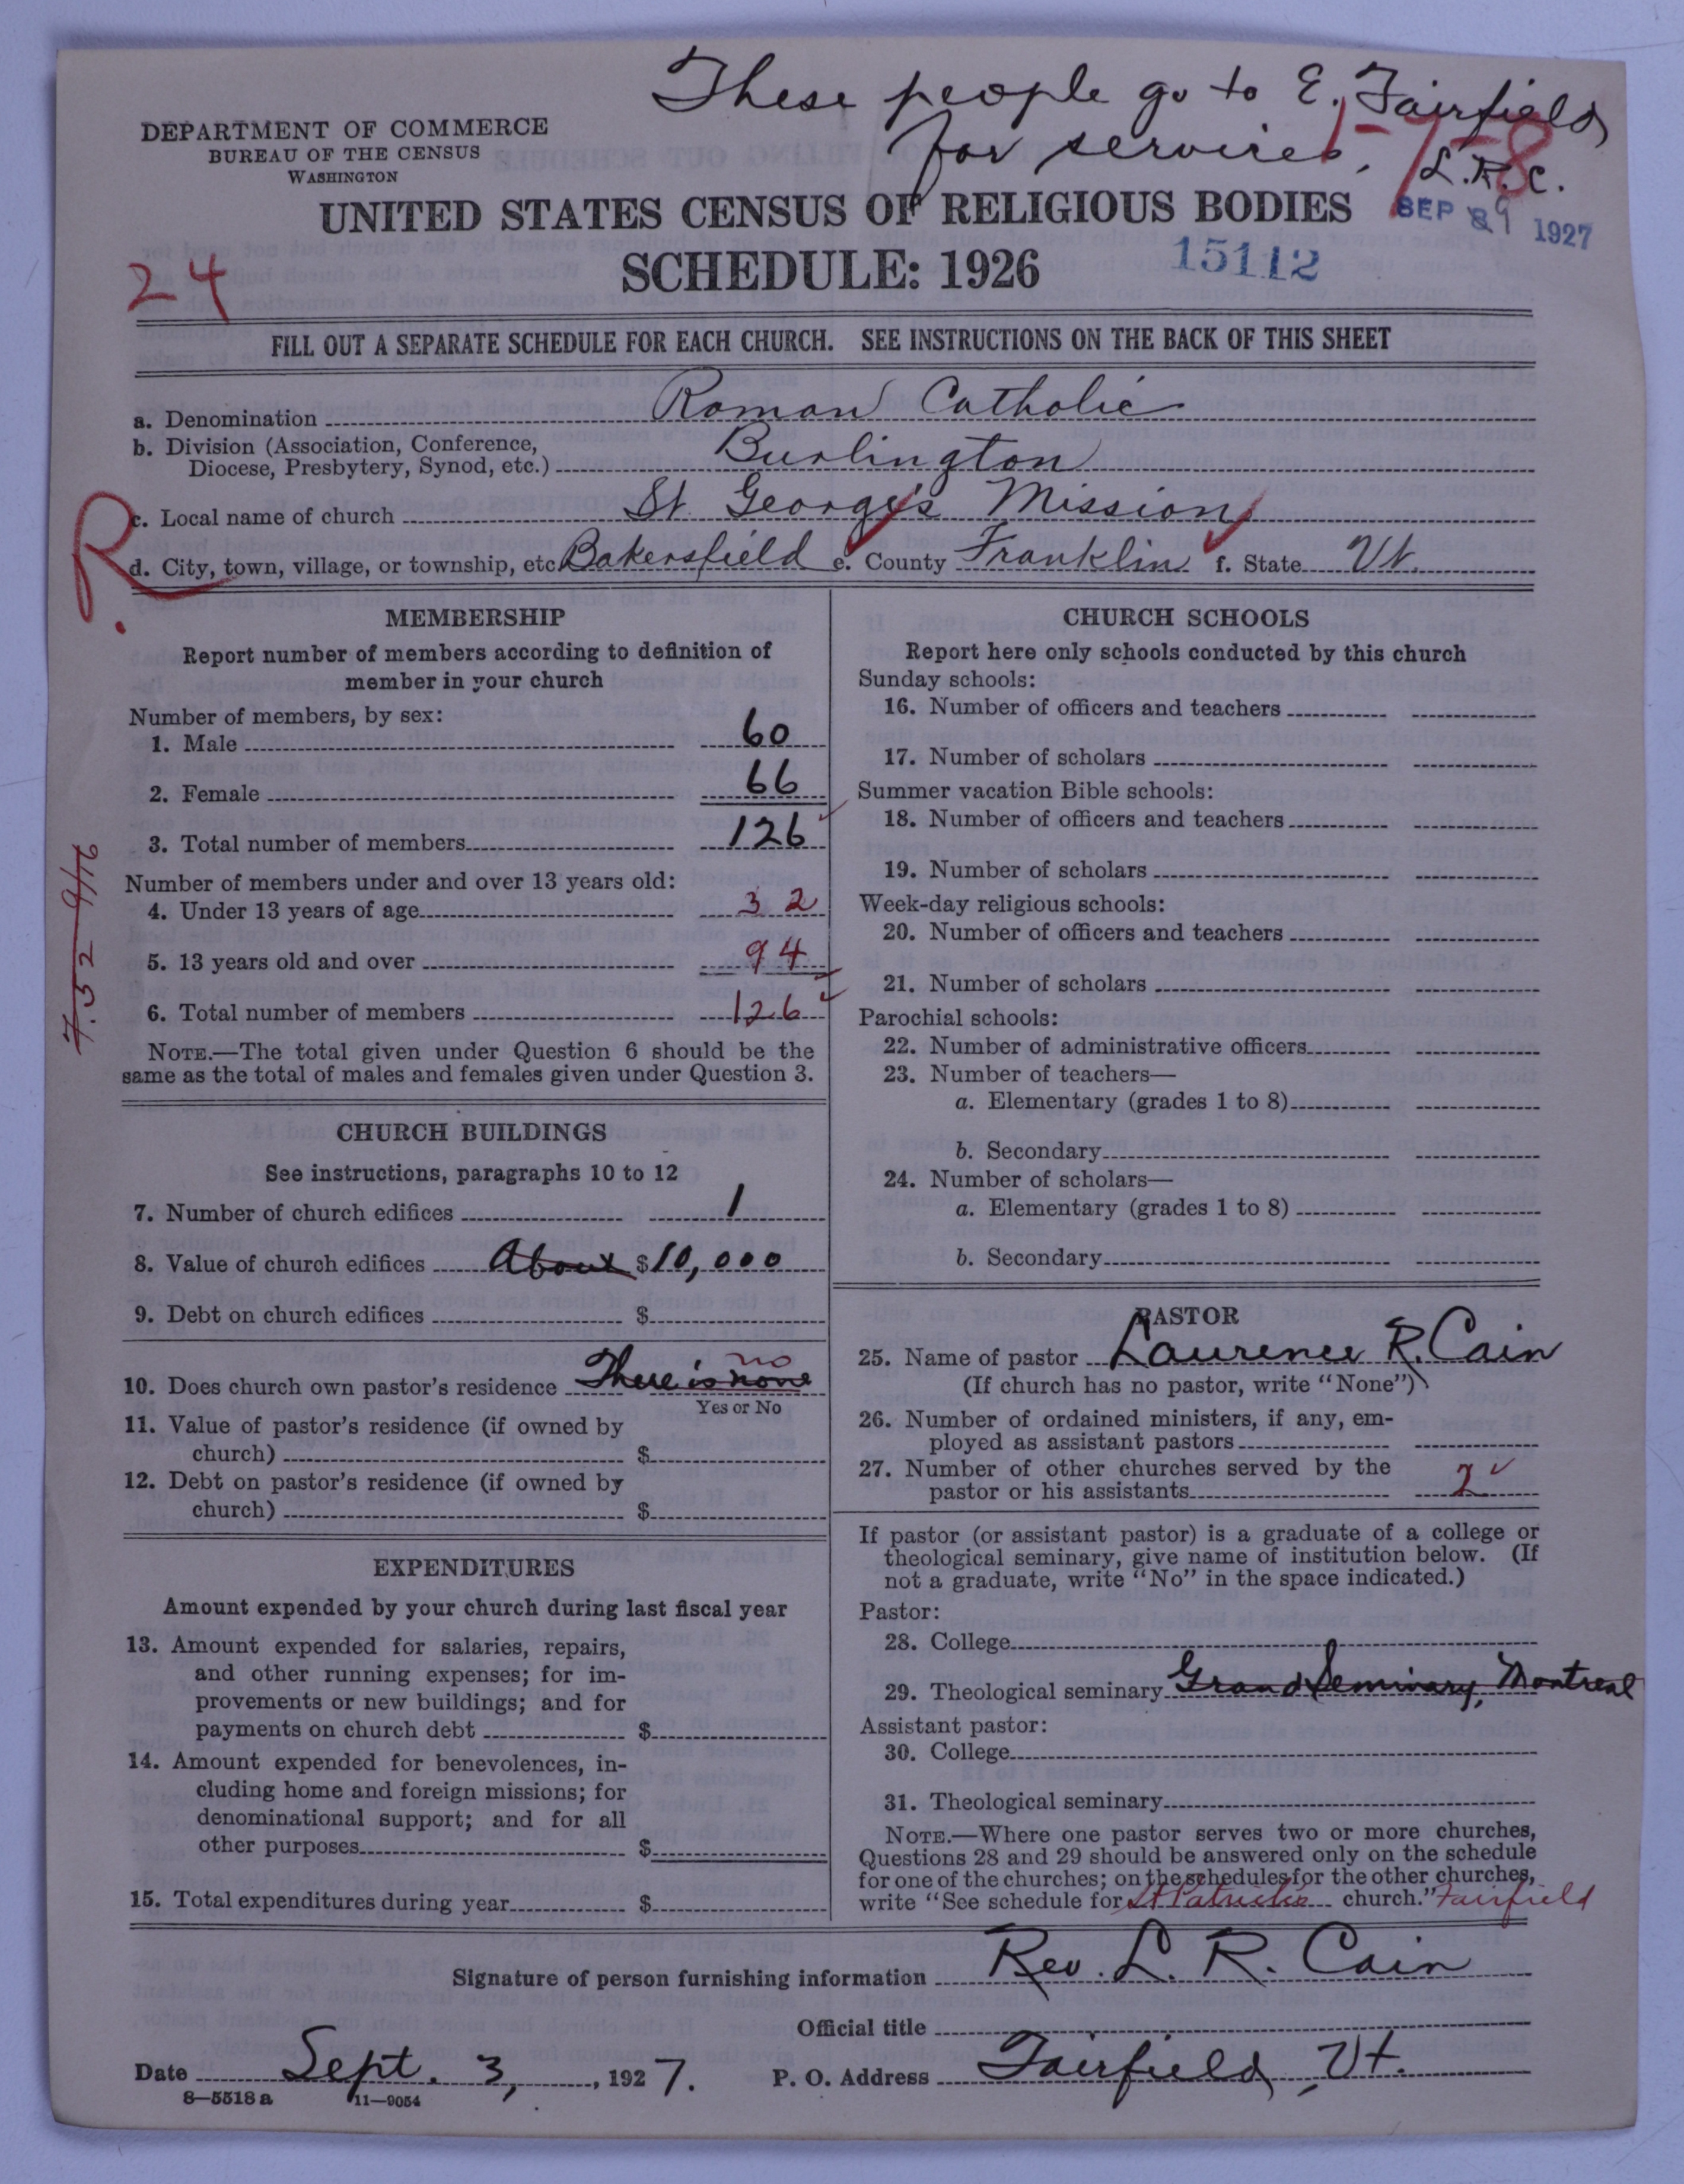 These people go to E. Fairfield
for services.
L.R.C.
1-7-8
DEPARTMENT OF COMMERCE
BUREAU OF THE CENSUS
WASHINGTON
UNITED STATES CENSUS OF RELIGIOUS BODIES
SEP 29 1927
SCHEDULE: 1926
15112
24
FILL OUT A SEPARATE SCHEDULE FOR EACH CHURCH. SEE INSTRUCTIONS ON THE BACK OF THIS SHEET
a. Denomination Roman Catholic
b. Division (Association, Conference,
Diocese, Presbytery, Synod, etc.) Burlington
R.
c. Local name of church St. George's Mission
d. City, town, village, or township, etc. Bakersfield e. County Franklin f. State Vt.
MEMBERSHIP
Report number of members according to definition of
member in your church
Number of members, by sex:
1. Male 60
2. Female 66
3. Total number of members 126
Number of members under and over 13 years old:
4. Under 13 years of age 32
5. 13 years old and over 94
6. Total number of members 126
7.52 9/16
NOTE.—The total given under Question 6 should be the
same as the total of males and females given under Question 3.
CHURCH BUILDINGS
See instructions, paragraphs 10 to 12
7. Number of church edifices 1
8. Value of church edifices About $10,000
9. Debt on church edifices $
10. Does church own pastor's residence There is none no
Yes or No
11. Value of pastor's residence (if owned by
church) $
12. Debt on pastor's residence (if owned by
church) $
EXPENDITURES
Amount expended by your church during last fiscal year
13. Amount expended for salaries, repairs,
and other running expenses; for im-
provements or new buildings; and for
payments on church debt $
14. Amount expended for benevolences, in-
cluding home and foreign missions; for
denominational support; and for all
other purposes $
15. Total expenditures during year $
CHURCH SCHOOLS
Report here only schools conducted by this church
Sunday schools:
16. Number of officers and teachers
17. Number of scholars
Summer vacation Bible schools:
18. Number of officers and teachers
19. Number of scholars
Week-day religious schools:
20. Number of officers and teachers
21. Number of scholars
Parochial schools:
22. Number of administrative officers
23. Number of teachers—
a. Elementary (grades 1 to 8)
b. Secondary
24. Number of scholars—
a. Elementary (grades 1 to 8)
b. Secondary
PASTOR
25. Name of pastor Laurence R. Cain
(If church has no pastor, write "None")
26. Number of ordained ministers, if any, em-
ployed as assistant pastors
27. Number of other churches served by the
pastor or his assistants 2
If pastor (or assistant pastor) is a graduate of a college or
theological seminary, give name of institution below. (If
not a graduate, write "No" in the space indicated.)
Pastor:
28. College
29. Theological seminary Grand Seminary, Montreal
Assistant pastor:
30. College
31. Theological seminary
NOTE.—Where one pastor serves two or more churches,
Questions 28 and 29 should be answered only on the schedule
for one of the churches; on the schedules for the other churches,
write "See schedule for St Patricks church." Fairfield
Signature of person furnishing information Rev. L. R. Cain
Official title
Date Sept. 3, 1927. P. O. Address Fairfield, Vt.
8—5518 a 11—9054